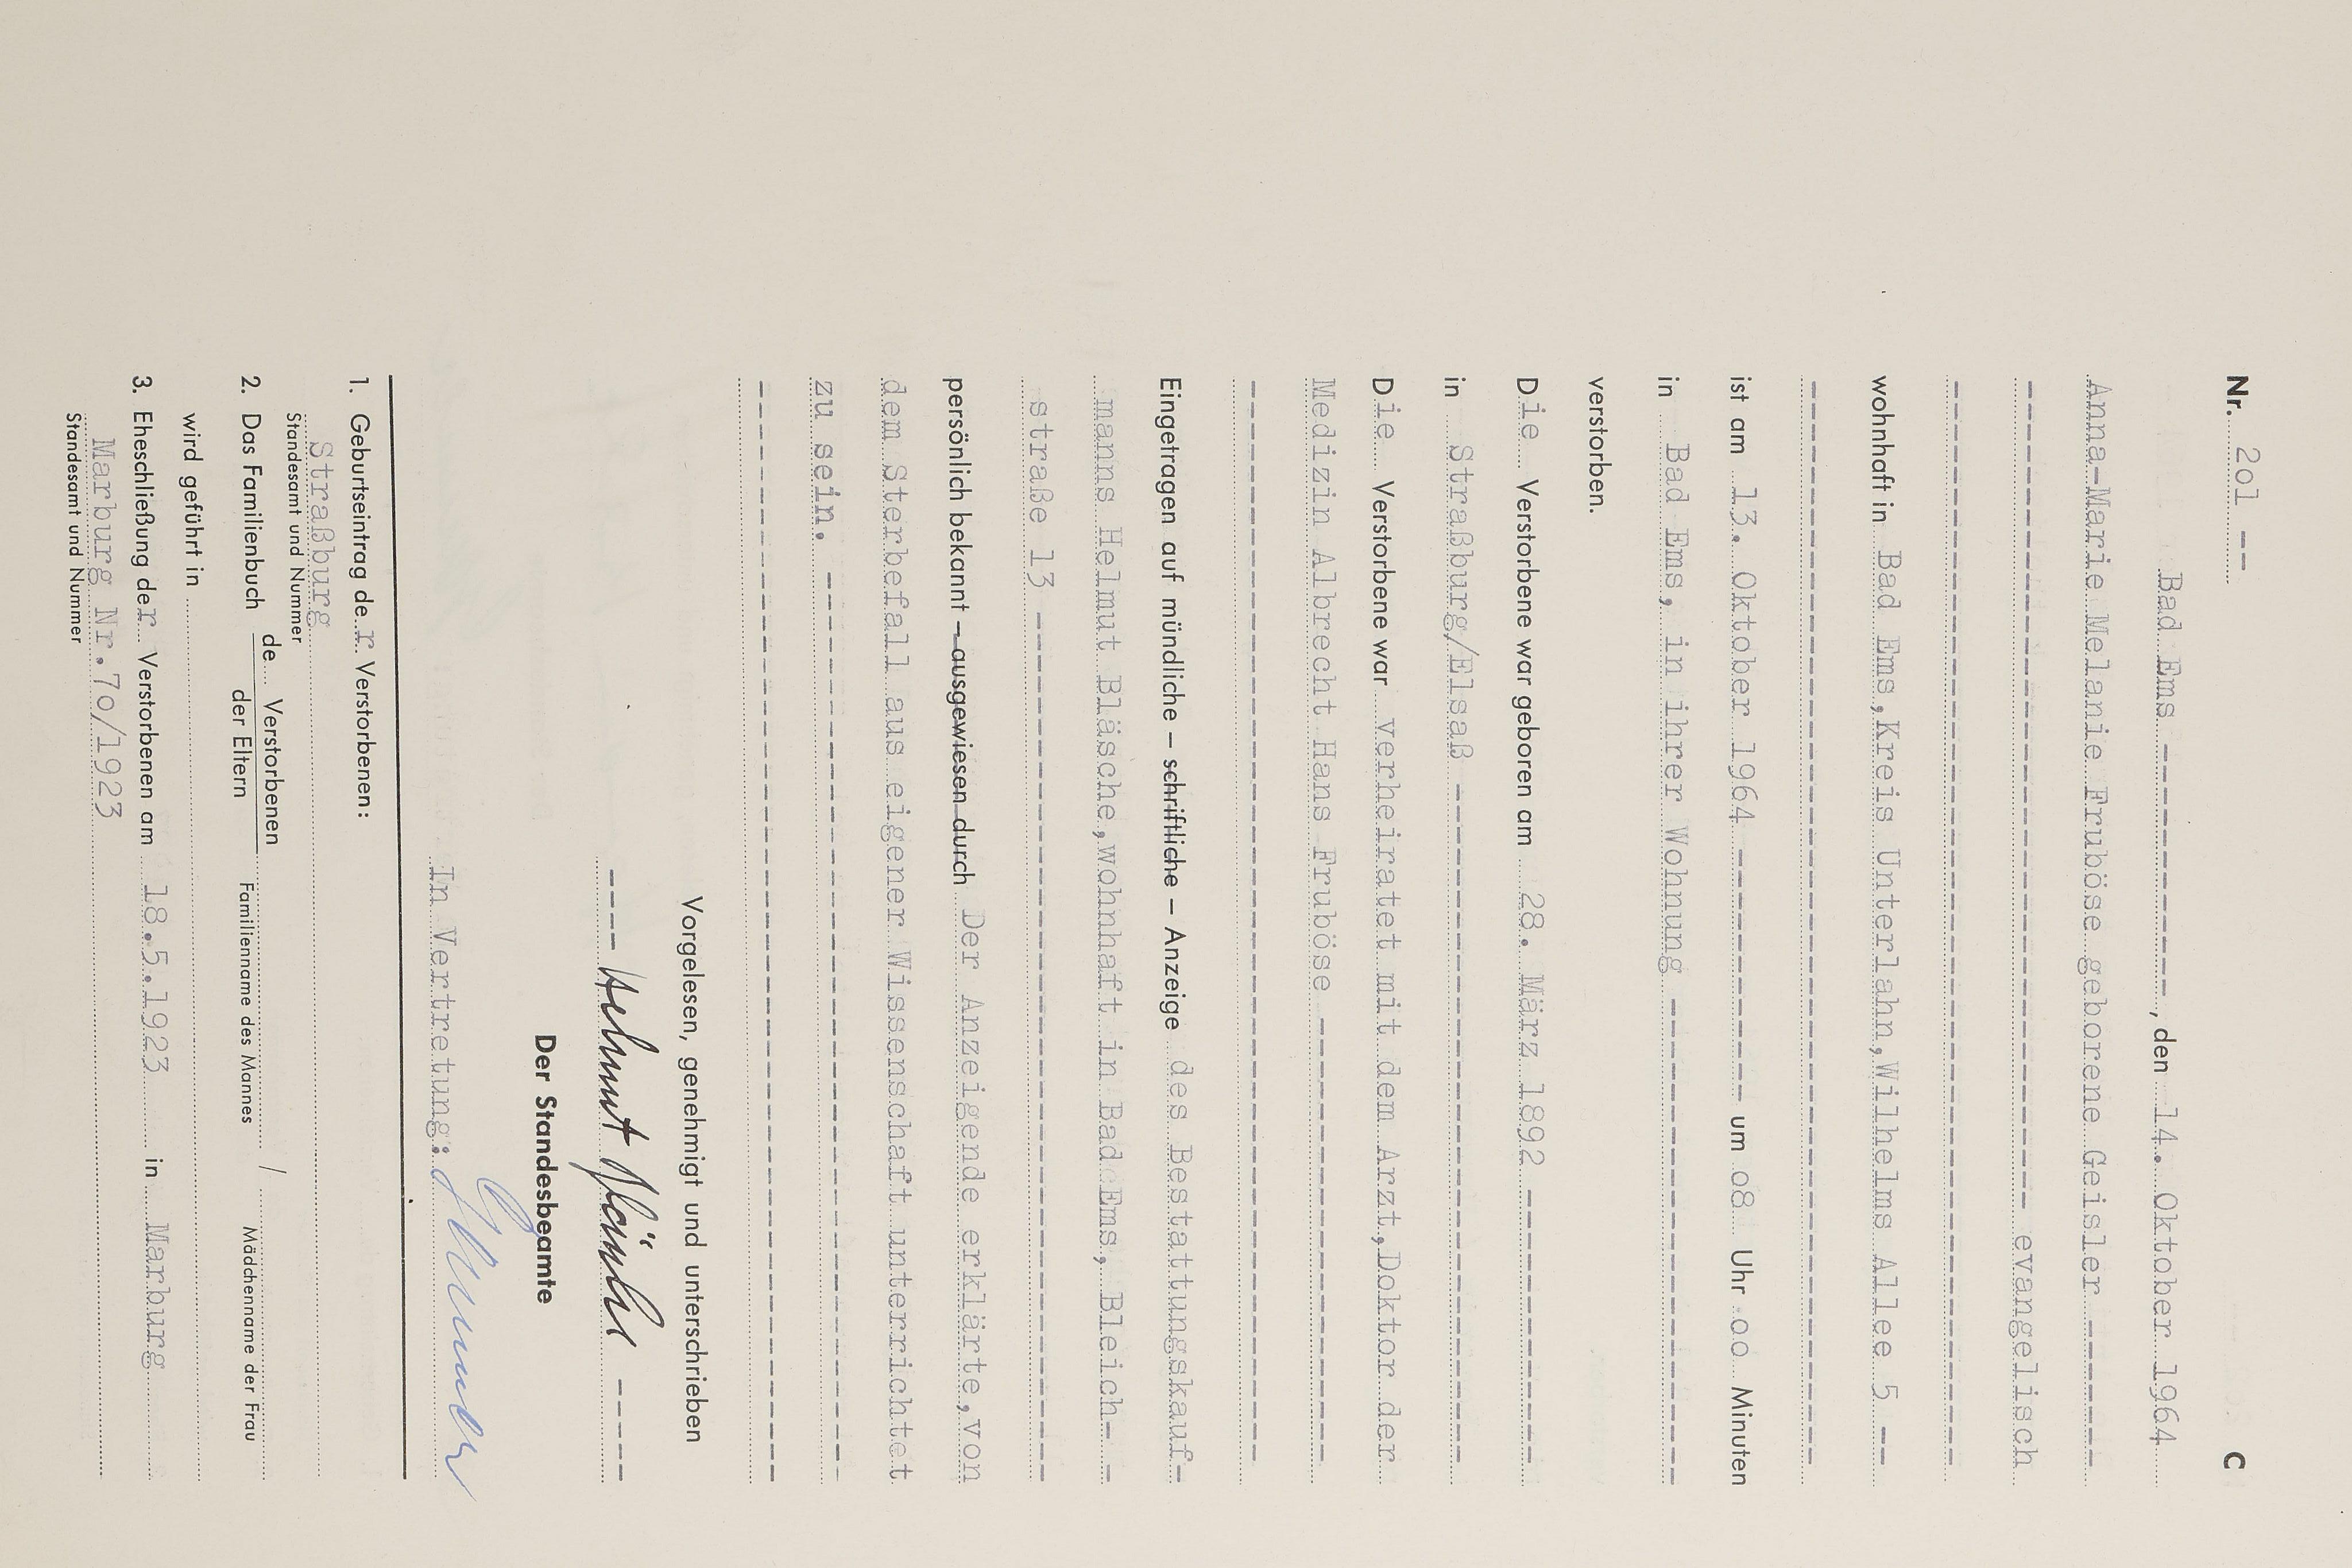 Nr. 2ol -- C
Bad Ems ------------, den 14. Oktober 1964
Anna-Marie Melanie Fruböse geborene Geisler -------
------------------------------------ evangelisch
wohnhaft in Bad Ems,Kreis Unterlahn,Wilhelms Allee 5 --
ist am 13. Oktober 1964 ------------ um o8 Uhr oo Minuten
in Bad Ems, in ihrer Wohnung --------------------
verstorben.
Die Verstorbene war geboren am 28. März 1892 ------------
in Straßburg/Elsaß ------------------------------
Die Verstorbene war verheiratet mit dem Arzt,Doktor der
Medizin Albrecht Hans Fruböse --------------------
Eingetragen auf mündliche – schriftliche – Anzeige des Bestattungskauf-
manns Helmut Bläsche,wohnhaft in Bad Ems, Bleich- -
straße 13 ----------------------------------------
persönlich bekannt – ausgewiesen durch Der Anzeigende erklärte,von
dem Sterbefall aus eigener Wissenschaft unterrichtet
zu sein. -----------------------------------------
Vorgelesen, genehmigt und unterschrieben
---- Helmut Bläsche ----
Der Standesbeamte
In Vertretung:
1. Geburtseintrag der Verstorbenen:
Straßburg
Standesamt und Nummer
2. Das Familienbuch de Verstorbenen / der Eltern /
Familienname des Mannes Mädchenname der Frau
wird geführt in
3. Eheschließung der Verstorbenen am 18.5.1923 in Marburg
Marburg Nr.7o/1923
Standesamt und Nummer